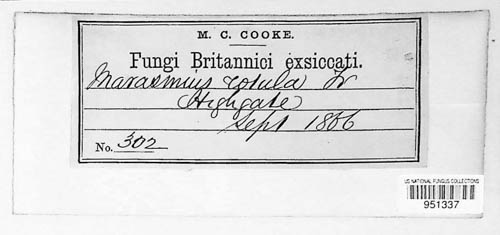 M. C. COOKE.
Fungi Britannici exsiccati.
Marasmius rotula Fr
Highgate
Sept 1866
No. 302
US NATIONAL FUNGUS COLLECTIONS
951337